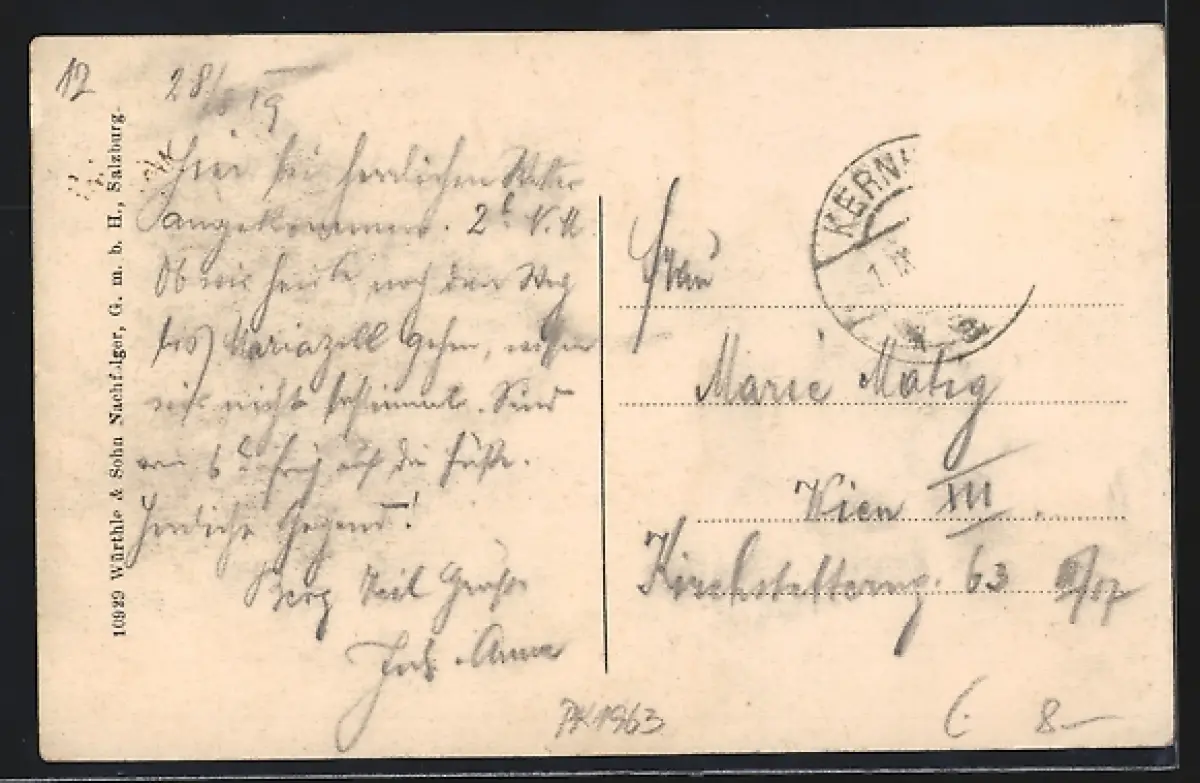 12
28/8 19
Hier bei herrlichem Wetter
angekommen. 2h N.M.
Ob wir heute noch den Weg
bis Mariazell gehen, wissen
wir nicht bestimmt. Sind
von 6h früh auf die Füße.
Herrliche Gegend!
Berg Heil Grüße
Anna
10929 Würthle & Sohn Nachfolger, G. m. b. H., Salzburg.
KERN
1. IX
a
Frau
Marie Matig
Wien XIII.
Kirchstetterng. 63 /17
PK1963
8-